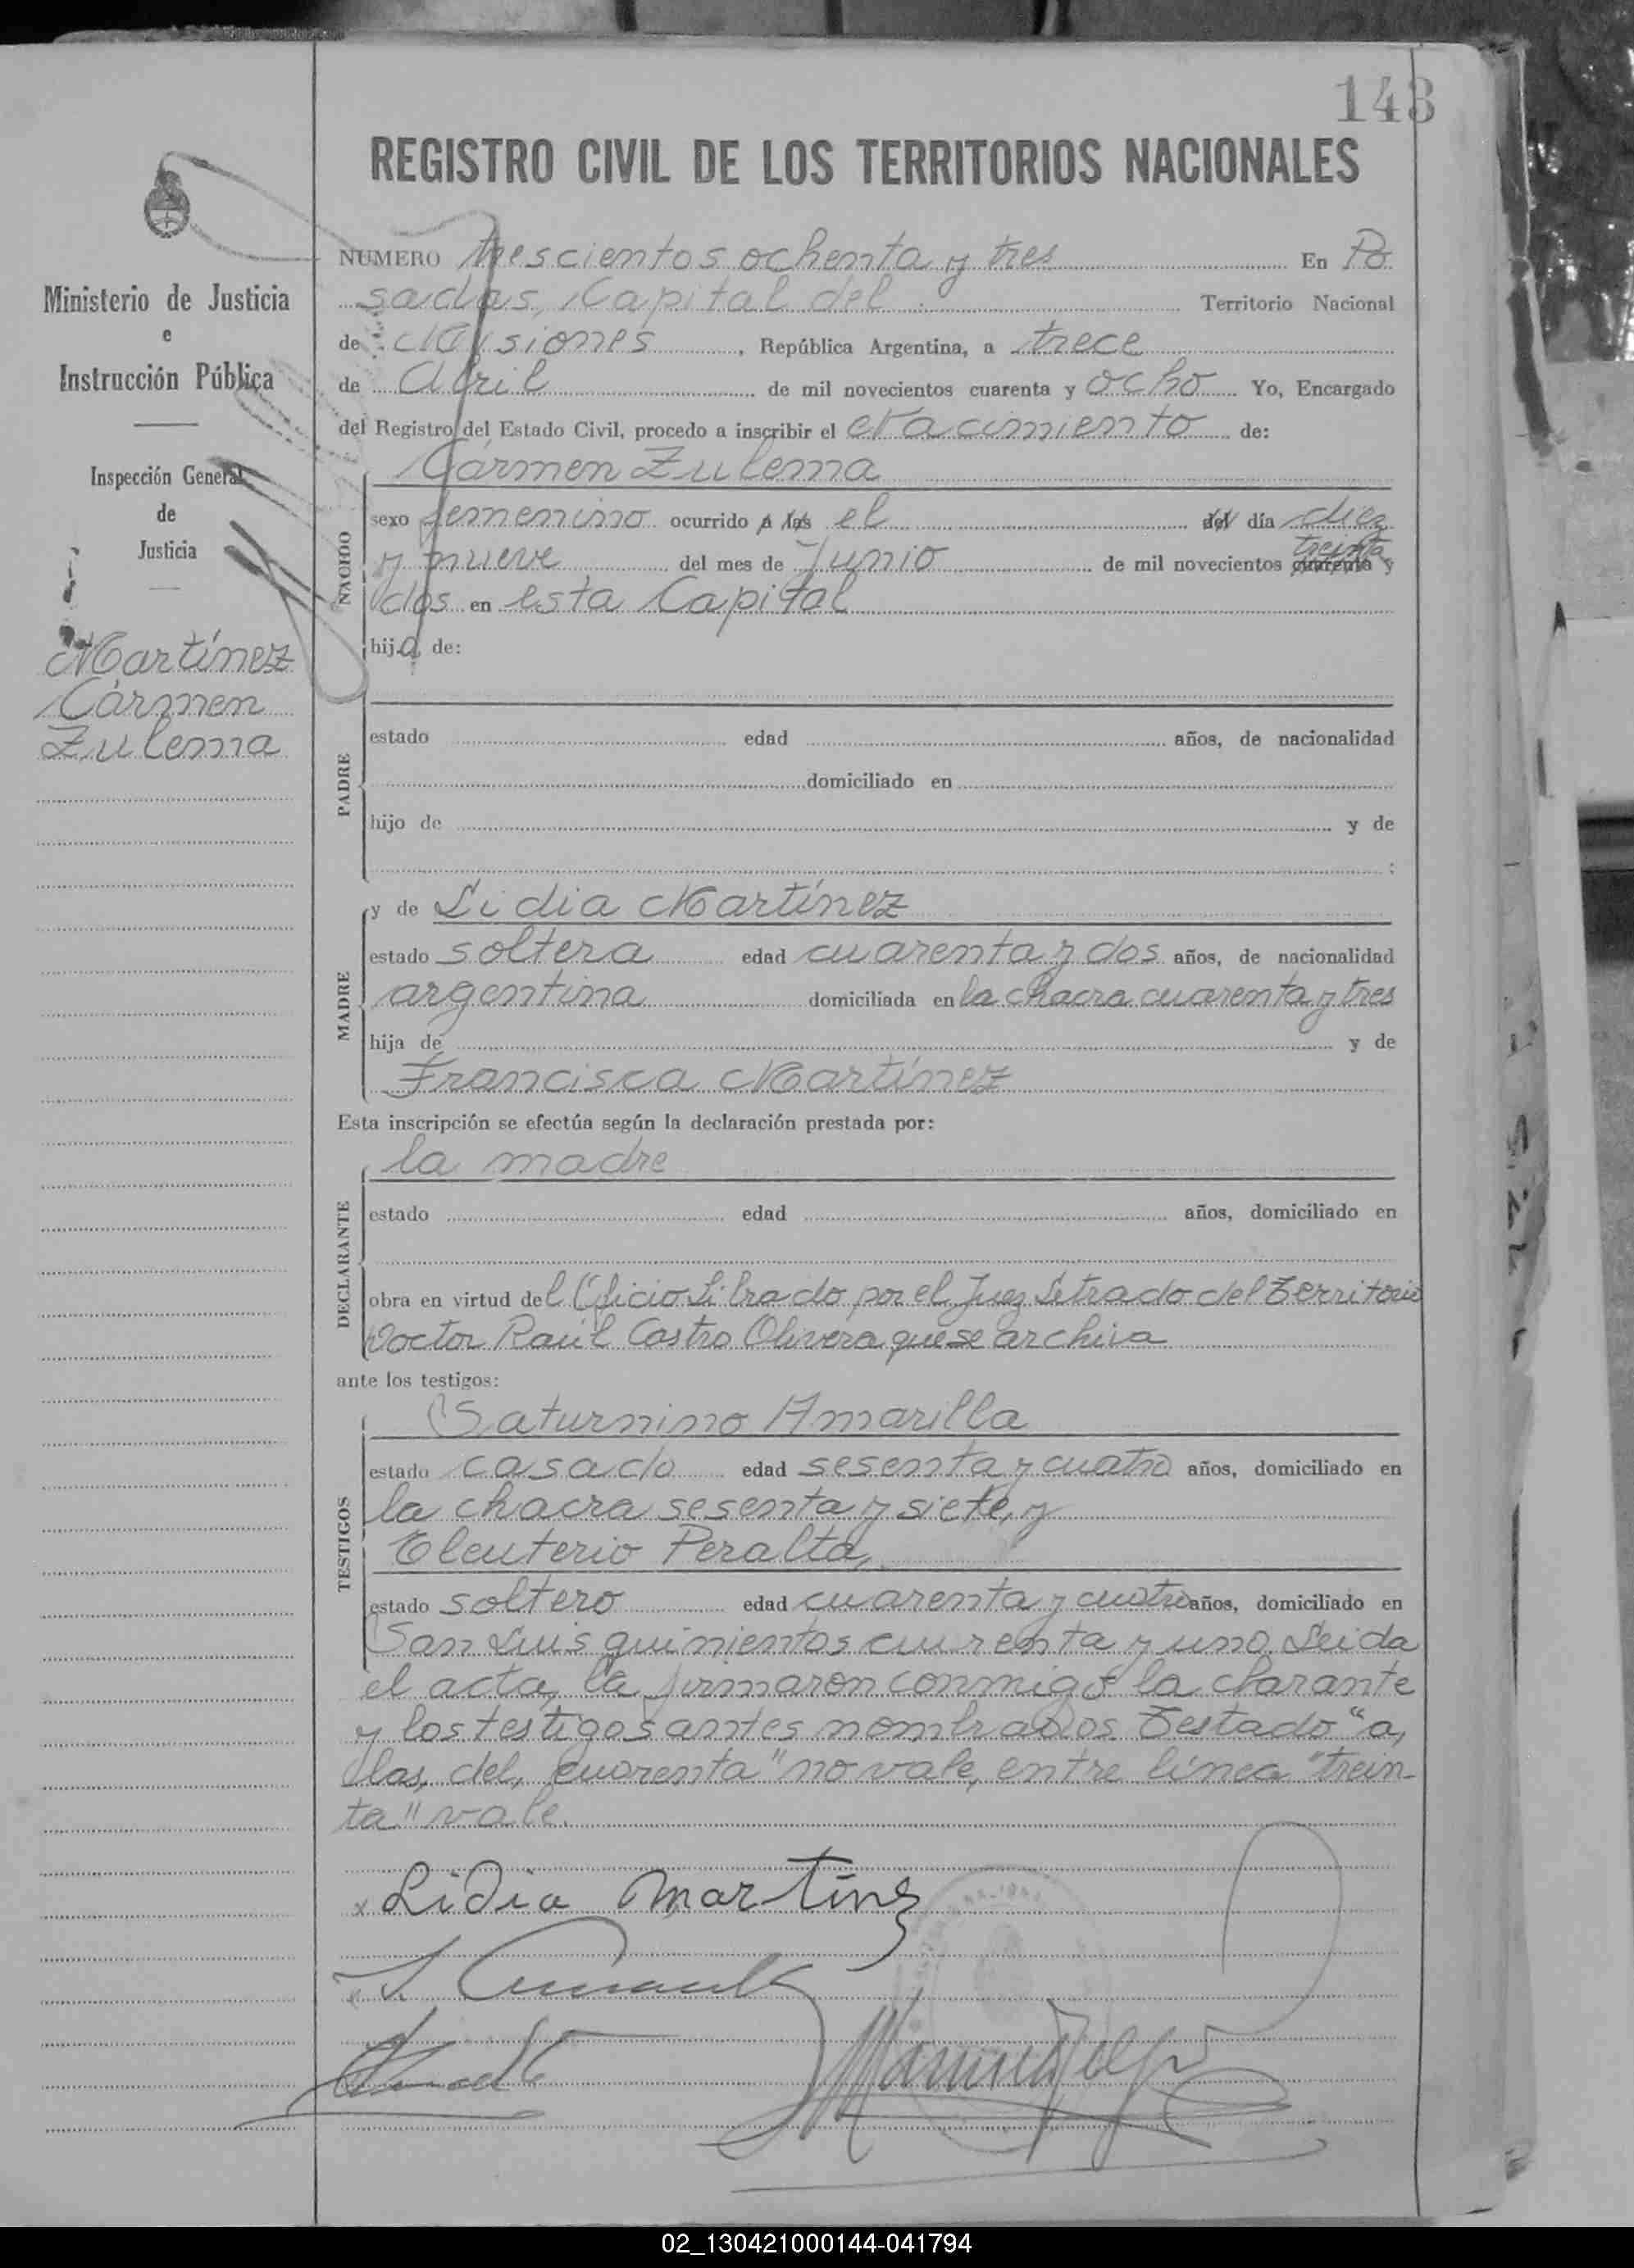 143
REGISTRO CIVIL DE LOS TERRITORIOS NACIONALES
Ministerio de Justicia
e
Instrucción Pública
Inspección General
de
Justicia
Martínez
Cármen
Zulema
NUMERO trescientos ochenta y tres En Po
sadas, Capital del Territorio Nacional
de Misiones, República Argentina, a trece
de Abril de mil novecientos cuarenta y ocho Yo, Encargado
del Registro del Estado Civil, procedo a inscribir el Nacimiento de:
NACIDO
Cármen Zulema
sexo femenino ocurrido a las el del día diez
y nueve del mes de Junio de mil novecientos cuarenta treinta y
dos en esta Capital
hija de:
PADRE
estado edad años, de nacionalidad
domiciliado en
hijo de y de
:
MADRE
y de Lidia Martínez
estado soltera edad cuarenta y dos años, de nacionalidad
argentina domiciliada en la chacra cuarenta y tres
hija de y de
Francisca Martínez
Esta inscripción se efectúa según la declaración prestada por:
DECLARANTE
la madre
estado edad años, domiciliado en
obra en virtud del Oficio Librado por el Juez Letrado del Territorio
Doctor Raúl Castro Olivera que se archiva
ante los testigos:
TESTIGOS
Saturnino Amarilla
estado casado edad sesenta y cuatro años, domiciliado en
la chacra sesenta y siete, y
Eleuterio Peralta,
estado soltero edad cuarenta y cuatro años, domiciliado en
San Luis quinientos cuarenta y uno. Leida
el acta, la firmaron conmigo la clarante
y los testigos antes nombrados. Testado "a,
las, del, cuarenta" no vale, entre línea "trein-
ta" vale.
x Lidia Martinez
02_130421000144-041794